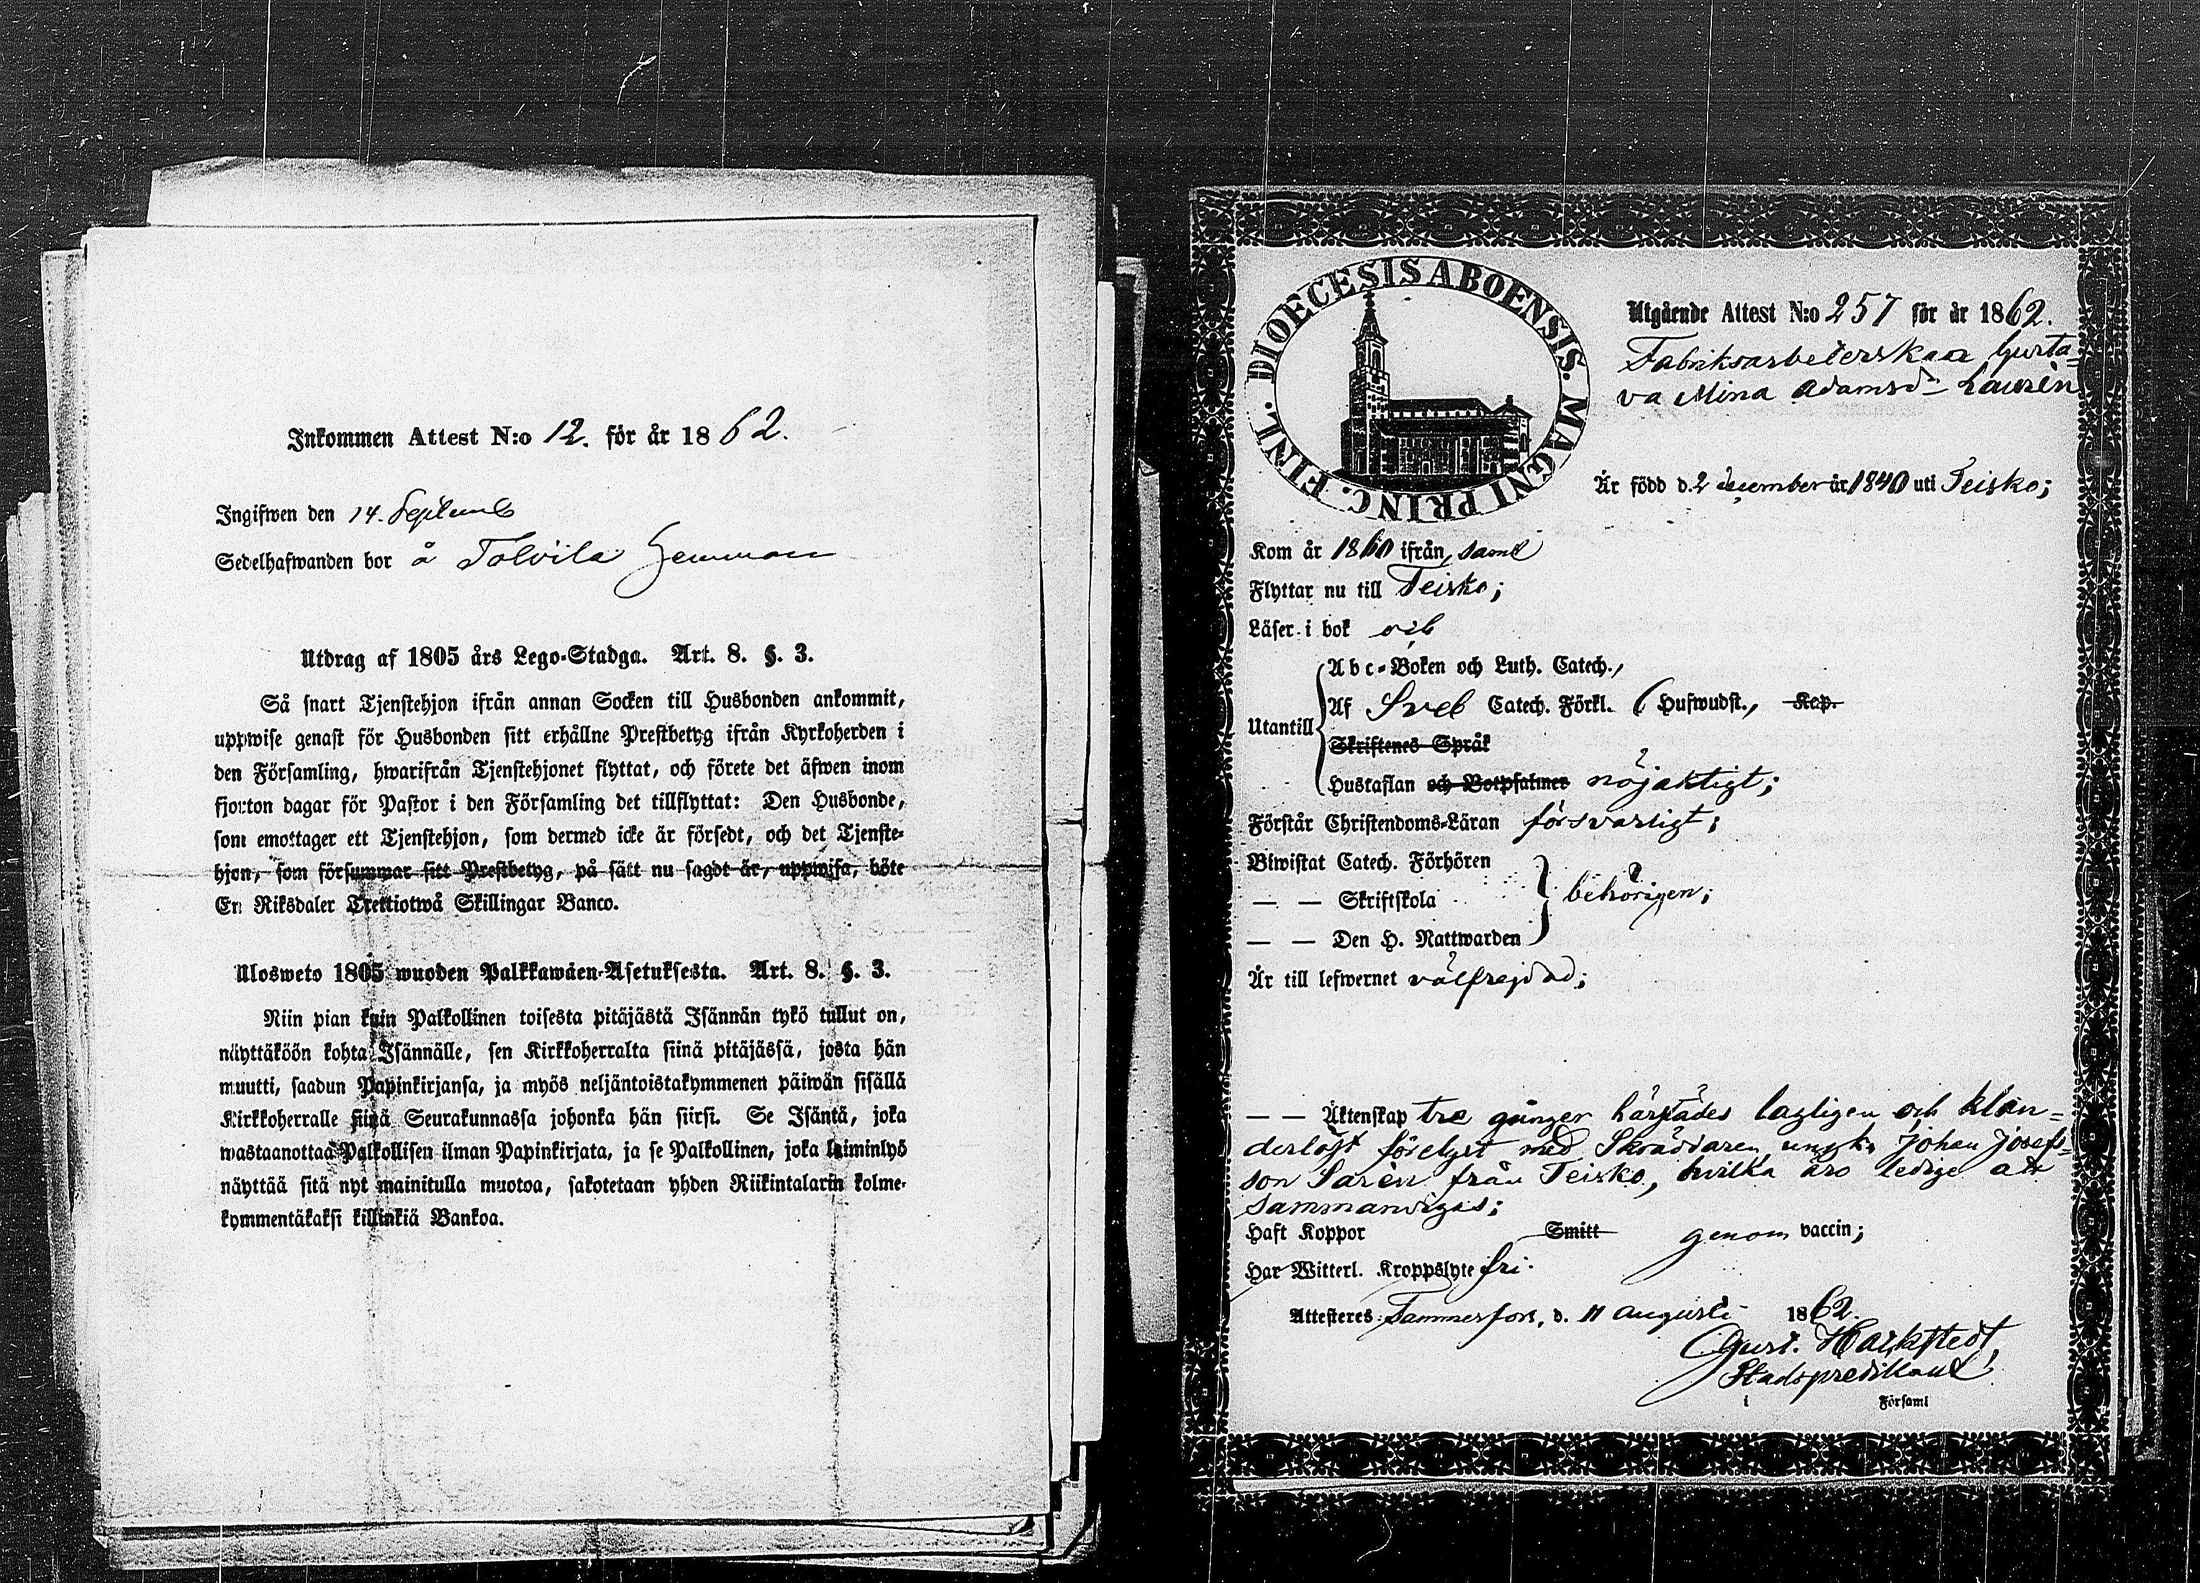 Inkommen Attest N:o 12. för år 1862.
Ingifwen den 14. Septemb
Sedelhafwanden bor å Tolvila Hemman
Utdrag af 1805 års Lego-Stadga. Art. 8. §. 3.
Så snart Tjenstehjon ifrån annan Socken till Husbonden ankommit,
uppwise genast för Husbonden sitt erhållne Prestbetyg ifrån Kyrkoherden i
den Församling, hwarifrån Tjenstehjonet flyttat, och förete det äfwen inom
fjorton dagar för Pastor i den Församling det tillflyttat: Den Husbonde,
som emottager ett Tjenstehjon, som dermed icke är försedt, och det Tjenste-
hjon, som försummar sitt Prestbetyg, på sätt nu sagdt är, uppwisa, böte
En Riksdaler Trettiotwå Skillingar Banco.
Ulosweto 1805 wuoden Palkkawäen-Asetuksesta. Art. 8. §. 3.
Niin pian kuin Palkollinen toisesta pitäjästä Isännän tykö tullut on,
näyttäköön kohta Isännälle, sen Kirkkoherralta siinä pitäjässä, josta hän
muutti, saadun Papinkirjansa, ja myös neljäntoistakymmenen päiwän sisällä
Kirkkoherralle siinä Seurakunnassa johonka hän siirsi. Se Isäntä, joka
wastaanottaa Palkollisen ilman Papinkirjata, ja se Palkollinen, joka laiminlyö
näyttää sitä nyt mainitulla muotoa, sakotetaan yhden Riikintalarin kolme-
kymmentäkaksi killinkiä Bankoa.
DIOECESIS ABOENSIS. MAGNI PRINC. FINL.
Utgående Attest N:o 257 för år 1862.
Fabriksarbeterskan Gusta-
va Mina Adamsdr Laurèn
Är född d. 2 december år 1840 uti Teisko;
Kom år 1860 ifrån, samt
Flyttar nu till Teisko;
Läser i bok och
Abc-Boken och Luth. Catech.,
Utantill Af Sveb Catech. Förkl. ( Hufwudst., Kap.
Skriftenes Språk
Hustaflan och Botpsalmer nöjaktigt;
Förstår Christendoms-Läran försvarligt;
Biwistat Catech. Förhören
— — Skriftskola behörigen;
— — Den H. Nattwarden
Är till lefwernet välfrejdad;
— — Äktenskap tre gånger härstädes lagligen och klan-
derlöst förelyst med Skräddaren ungk. Johan Josefs-
son Sarèn från Teisko, hvilka äro ledige att
sammanvigas;
Haft Koppor Smitt genom vaccin;
Har Witterl. Kroppslyte fri.
Attesteres Tammerfors, d. 11 augusti 1862.
Gust.
Stadspredikant
i Församl